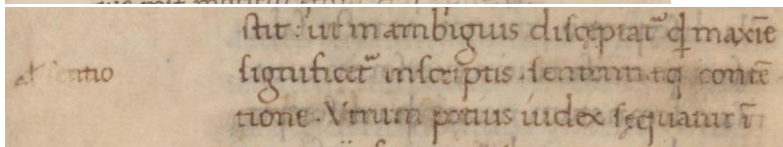 stit: ut in ambiguis discęptat᷑ qd maxiēe
ał sentio
significet᷑ in scriptis. sententięq; contē
tione. Vtrum potius iudex sęquatur ī